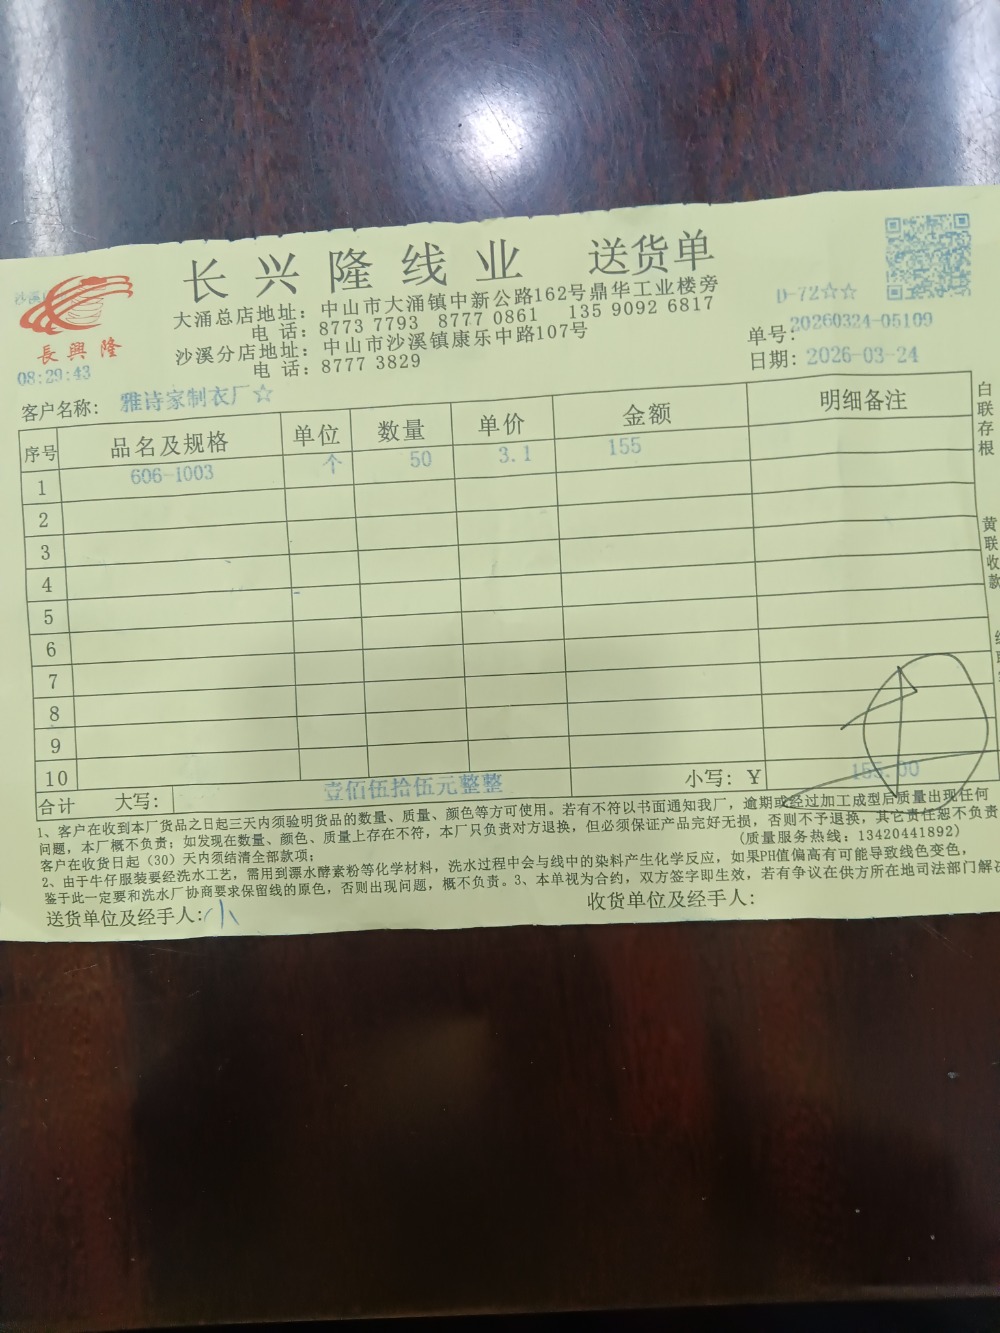 长兴隆线业 送货单
大涌总店地址：中山市大涌镇中新公路162号鼎华工业楼旁
电 话：8773 7793 8777 0861 135 9092 6817
沙溪分店地址：中山市沙溪镇康乐中路107号
电 话：8777 3829
長興隆
08:29:43
D-72☆☆
单号：20260324-05109
日期：2026-03-24
客户名称：雅诗家制衣厂☆
序号 品名及规格 单位 数量 单价 金额 明细备注
1 606-1003 个 50 3.1 155
2
3
4
5
6
7
8
9
10
合计 大写：壹佰伍拾伍元整整 小写：￥155.00
1、客户在收到本厂货品之日起三天内须验明货品的数量、质量、颜色等方可使用。若有不符以书面通知我厂，逾期或经过加工成型后质量出现任何
问题，本厂概不负责；如发现在数量、颜色、质量上存在不符，本厂只负责对方退换，但必须保证产品完好无损，否则不予退换，其它责任恕不负责
客户在收货日起（30）天内须结清全部款项； (质量服务热线：13420441892)
2、由于牛仔服装要经洗水工艺，需用到漂水酵素粉等化学材料，洗水过程中会与线中的染料产生化学反应，如果PH值偏高有可能导致线色变色，
鉴于此一定要和洗水厂协商要求保留线的原色，否则出现问题，概不负责。3、本单视为合约，双方签字即生效，若有争议在供方所在地司法部门解决
送货单位及经手人：小 收货单位及经手人：
白联存根
黄联收款